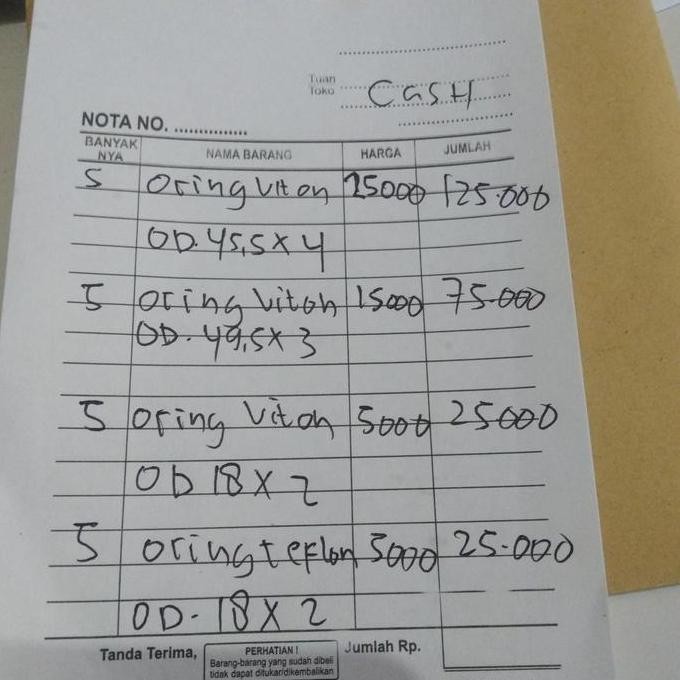 Tuan
Toko CASH
NOTA NO. ...............
BANYAK NYA NAMA BARANG HARGA JUMLAH
5 oring viton 25000 125.000
OD. 45,5 x 4
5 oring viton 15000 75.000
OD. 49,5 x 3
5 oring viton 5000 25000
OD 18 x 2
5 oring teflon 5000 25.000
OD. 18 x 2
Tanda Terima, PERHATIAN ! Jumlah Rp.
Barang-barang yang sudah dibeli
tidak dapat ditukar/dikembalikan